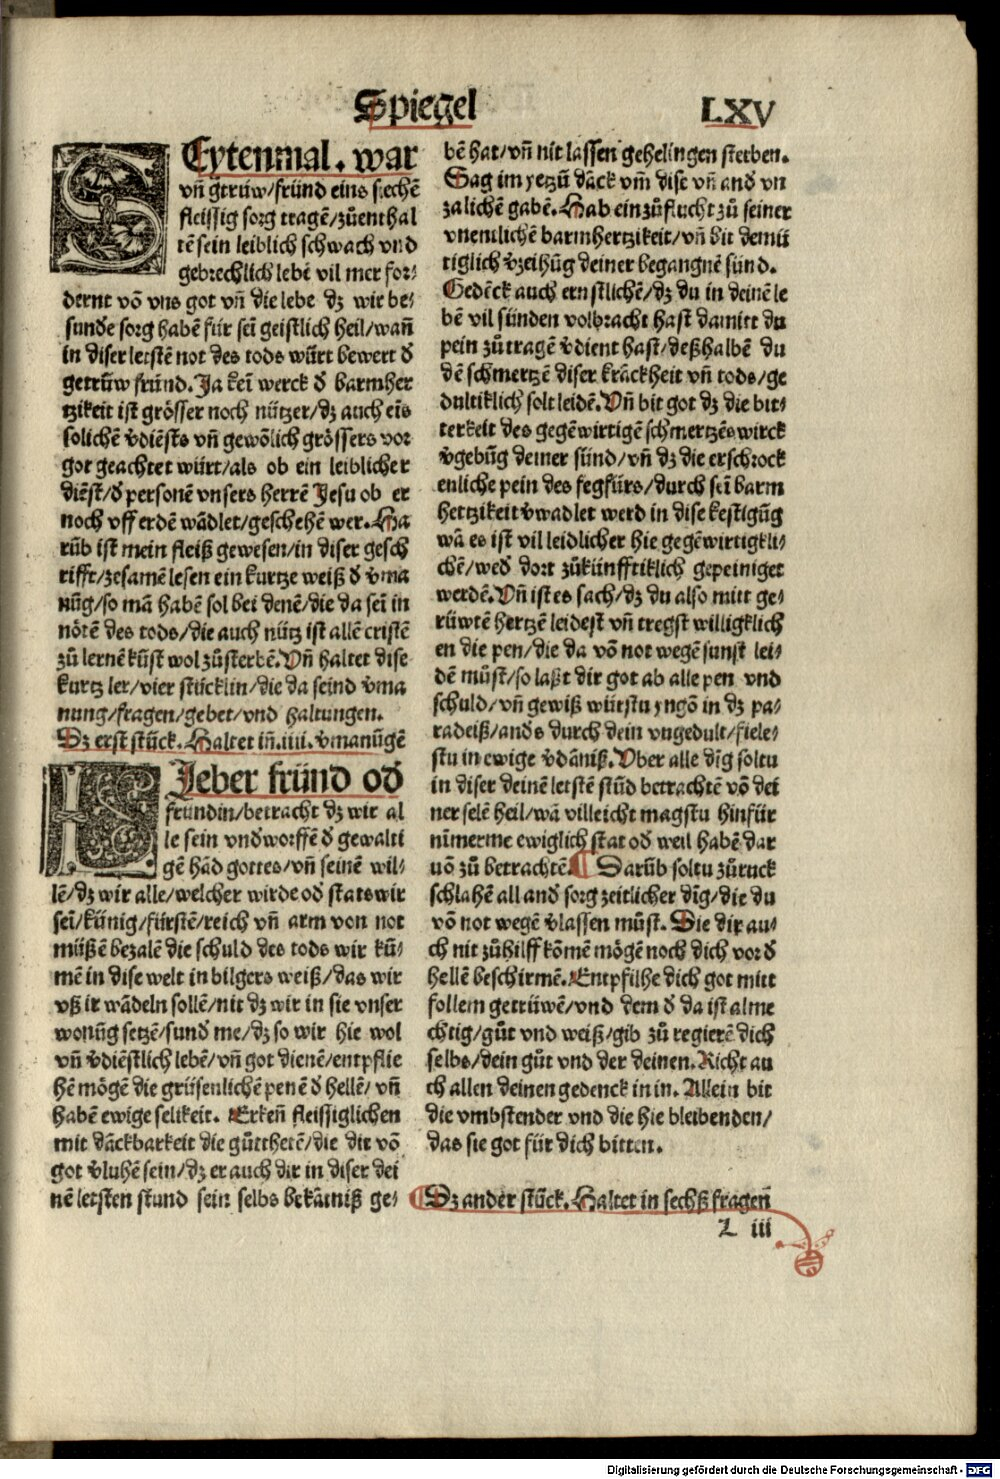 Spiegel
LXV
SEytenmal. war
vñ gtrüw/fründ eins siechē
fleissig sorg tragē/zůenthal
tē sein leiblich schwach vnd
gebrechlich lebē vil mer for⸗
dernt vō vns got vñ die lebe dz wir be⸗
sunde sorg habē für seī geistlich heil/wañ
in diser letstē not des tods würt bewert d̄
getrüw fründ. Ja keī werck d̄ barmher
tzikeit ist grösser noch nützer/dz auch eīs
solichē v̄diēsts vñ gewōlich grössers vor
got geachtet würt/als ob ein leiblicher
diēst/d̄ personē vnsers herrē Jesu ob er
noch vff erdē wādlet/geschehē wer. Ha
rūb ist mein fleiß gewesen/in diser gesch
rifft/zesamē lesen ein kurtze weiß d̄ v̄ma
nūg/so mā habēsol bei denē/die da seī in
nötē des tods/die auch nütz ist allē cristē
zů lernē kūst wol zůsterbē. Vñ haltet dise
kurtz ler/vier stücklin/die da seind v̄ma
nung/fragen/gebet/vnd haltungen.
Dz erst stück. Haltet iñ.iiii. v̄manūgē
LIeber fründ od̄
fründin/betracht dz wir al
le sein vndworffē d̄ gewalti
gē hād gottes/vñ seinē wil⸗
lē/dz wir alle/welcher wirde od̄ stats wir
seī/künig/fürstē/reich vñ arm von not
müßē bezalē die schuld des tods wir kū⸗
mē in dise welt in bilgers weiß/das wir
vß ir wādeln sollē/nit dz wir in sie vnser
wonūg setzē/sund̄ me/dz so wir hie wol
vñ v̄diēstlich lebē/vñ got dienē/entpflie
hē mögē die grüsenlichē penē d̄ hellē/ vñ
habē ewige selikeit. Erkeñ fleissiglichen
mit dāckbarkeit die gůttherē/die dir vō
got v̄luhē sein/dz er auch dir in diser dei
nē letsten stund sein selbs bekātniß ge⸗
bē hat/vñ nit lassen gehelingen sterben.
Sag im yetzū dāck vm̄ dise vñ and̄ vn
zalichē gabē. Hab ein zůflucht zů seiner
vnentlichē barmhertzikeit/vñ bit demü
tiglich v̄zeihūg deiner begangnē sünd.
Gedēck auch ernstlichē/dz du in deinē le
bē vil sünden volbracht hast damitt du
pein zů tragē v̄dient hast/deßhalbē du
dē schmertzē diser krāckheit vñ tods/ge
dultiklich solt leidē. Vñ bit got dz die bit⸗
terkeit des gegēwirtigē schmertzēs wirck
v̄gebūg deiner sünd/vñ dz die erschrock
enliche pein des fegfürs/durch seī barm
hertzikeit v̄wadlet werd in dise kestigūg
wā es ist vil leidlicher hie gegēwirtigkli⸗
chē/wed̄ dort zůkünfftiklich gepeiniget
werdē. Vñ ist es sach/dz du also mitt ge⸗
rüwtē hertzē leidest vñ tregst willigklich
en die pen/die da vō not wegē sunst lei⸗
dē můst/so laßt dir got ab alle pen vnd
schuld/vñ gewiß würstu yngō in dz pa⸗
radeiß/and̄s durch dein vngedult/fiele⸗
stu in ewige v̄dāniß. Vber alle dīg soltu
in diser deinē letstē stūd betrachtē vō dei
ner selē heil/wā villeicht magstu hinfür
nīmerme ewiglich stat od̄ weil habē dar
uō zů betrachtē. ¶ Darūb soltu zůruck
schlahē all and̄ sorg zeitlicher dīg/die du
vō not wegē v̄lassen můst. Die dir au⸗
ch nit zůhilff kōmē mögē noch dich vor d̄
hellē beschirmē. Entpfilhe dich got mitt
follem getrüwē/vnd dem d̄ da ist alme
chtig/gůt vnd weiß/gib zů regierē dich
selbs/dein gůt vnd der deinen. Richt au
ch allen deinen gedenck in in. Allein bit
die vmbstender vnd die hie bleibenden/
das sie got für dich bitten.
¶ Dz ander stück. Haltet in sechß fragen
L iii
Digitalisierung gefördert durch die Deutsche Forschungsgemeinschaft - DFG